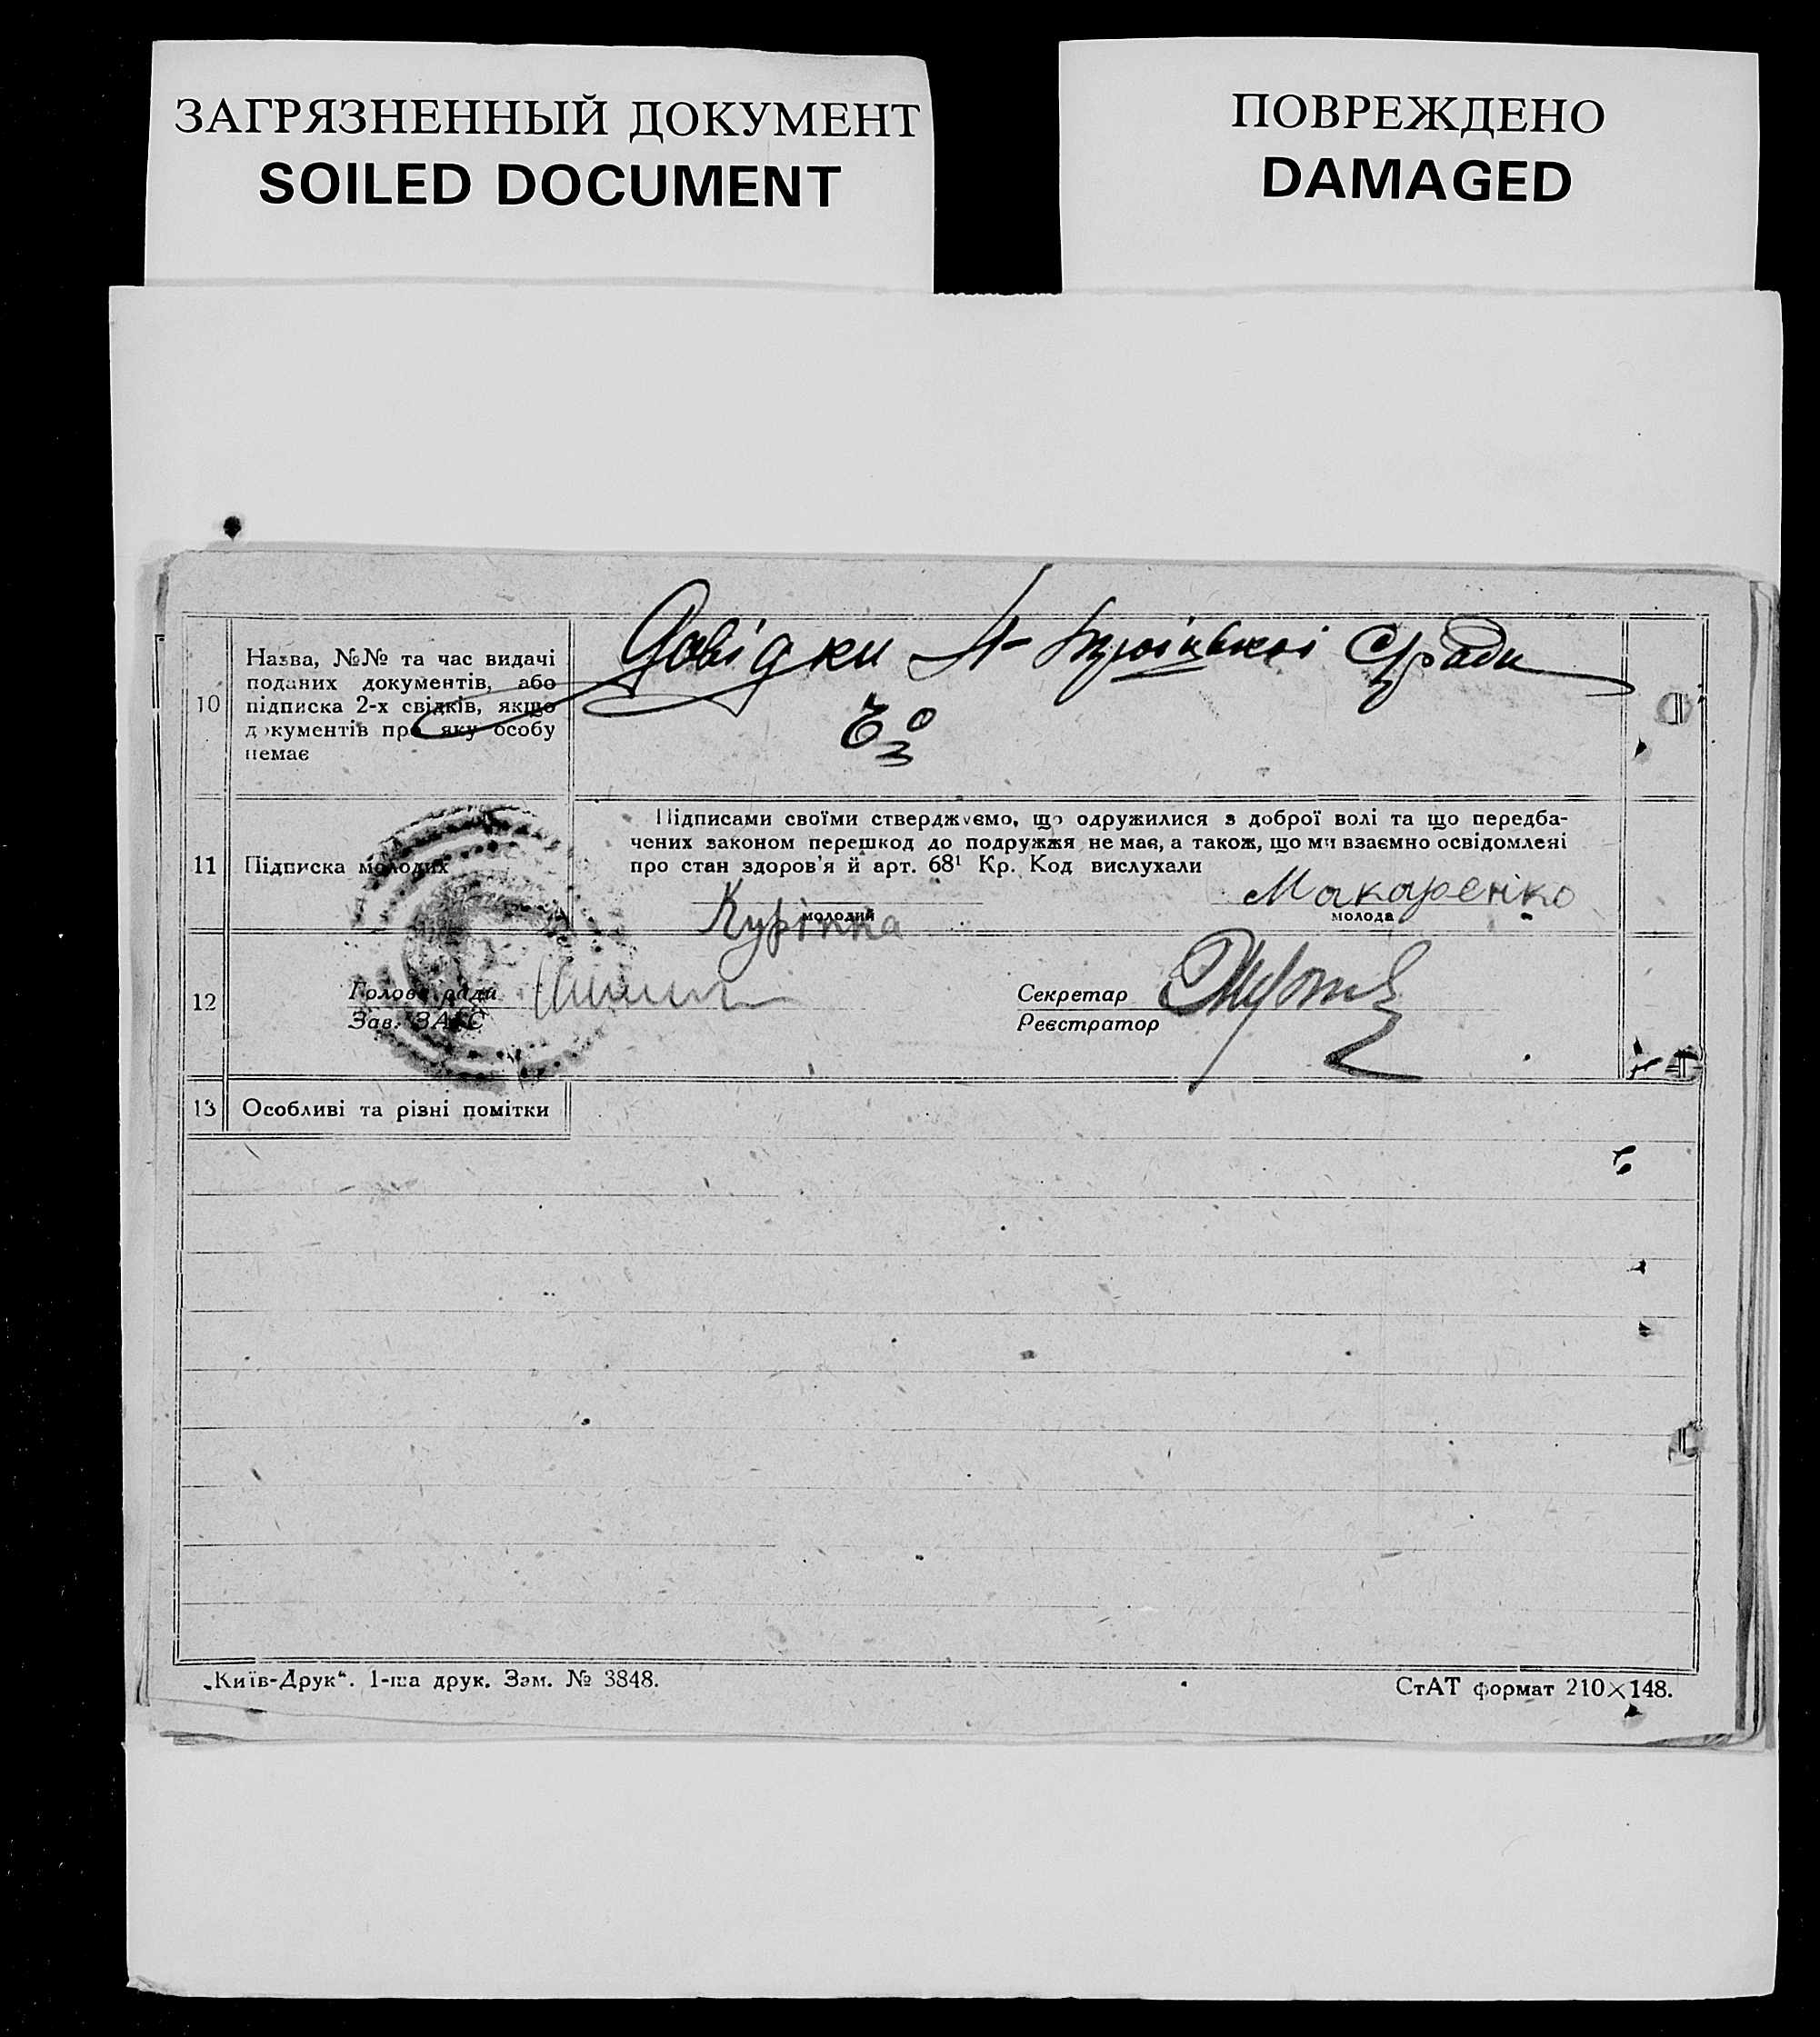 ЗАГРЯЗНЕННЫЙ ДОКУМЕНТ
SOILED DOCUMENT
ПОВРЕЖДЕНО
DAMAGED
10
Назва, №№ та час видачі
поданих документів, або
підписка 2-х свідків, якщо
документів про яку особу
немає
Довідки
11
Підписка молодих
Підписами своїми стверджуємо, що одружилися з доброї волі та що передба-
чених законом перешкод до подружжя не має, а також, що ми взаємно освідомлені
про стан здоров'я й арт. 68¹ Кр. Код вислухали
молодий
Макаренко
молода
12
Голова ради
Зав. ЗАГС
Секретар
Реєстратор
13
Особливі та різні помітки
„Київ-Друк“. 1-ша друк. Зам. № 3848.
СтАТ формат 210×148.